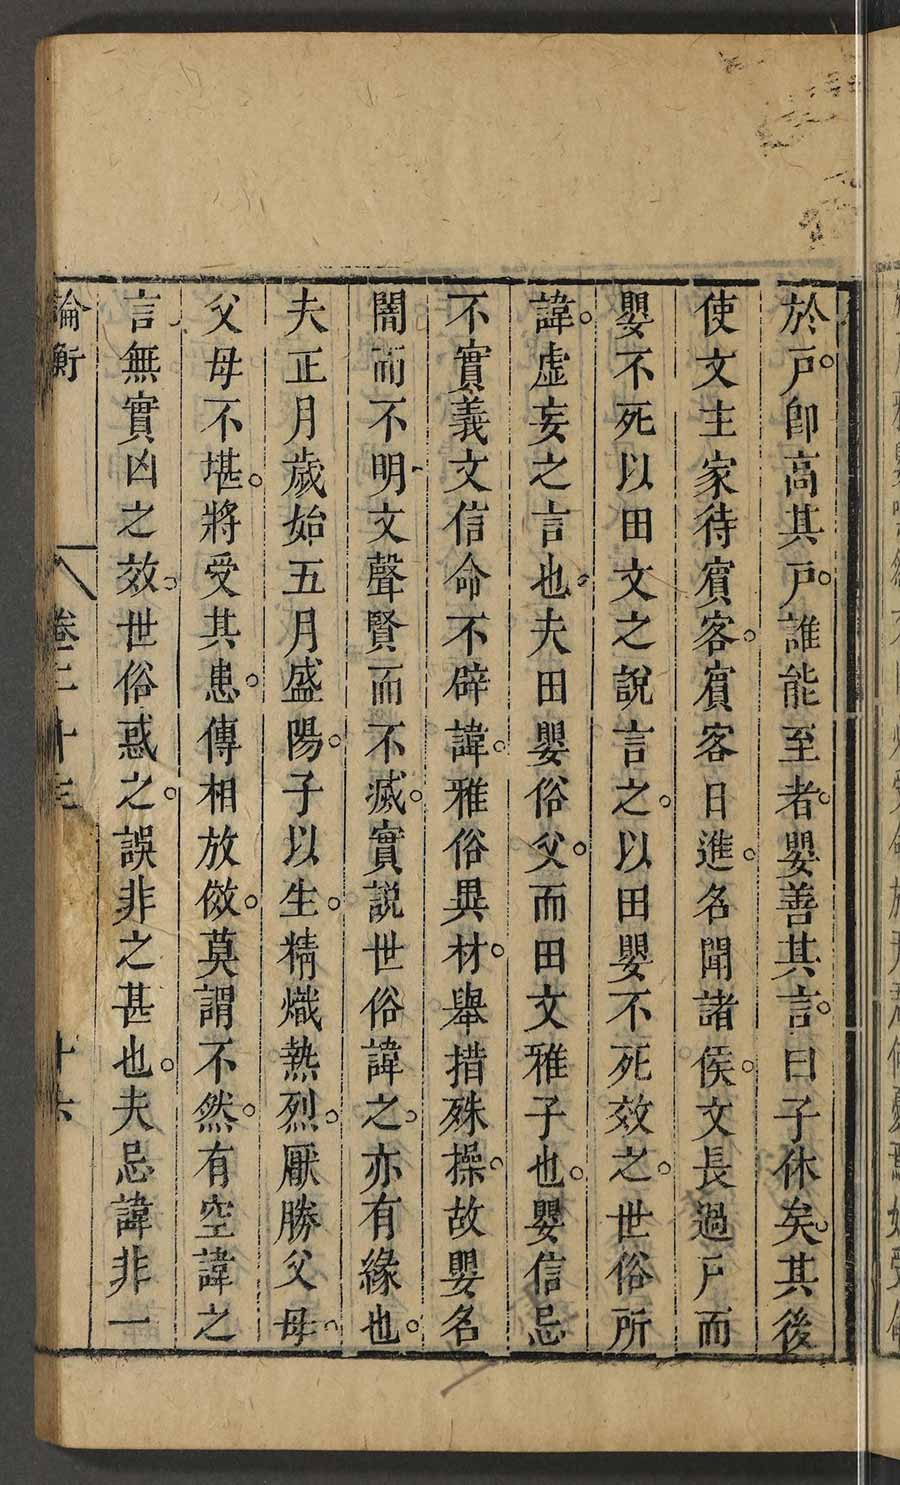 於戸。卽高其戸。誰能至者。嬰善其言。曰子休矣。其後
使文主家待賓客。賓客日進。名聞諸侯。文長過戸而
嬰不死以田文之說言之。以田嬰不死效之。世俗所
諱。虛妄之言也。夫田嬰俗父。而田文雅子也。嬰信忌
不實義文信命不辟諱。雅俗異材。舉措殊操。故嬰名
闇而不明文聲賢而不滅。實說世俗諱之。亦有緣也。
夫正月歲始五月盛陽。子以生。精熾熱烈。厭勝父母。
父母不堪。將受其患。傳相放傚。莫謂不然。有空諱之
言無實凶之效。世俗惑之。誤非之甚也。夫忌諱非一
論衡 卷二十三 十六